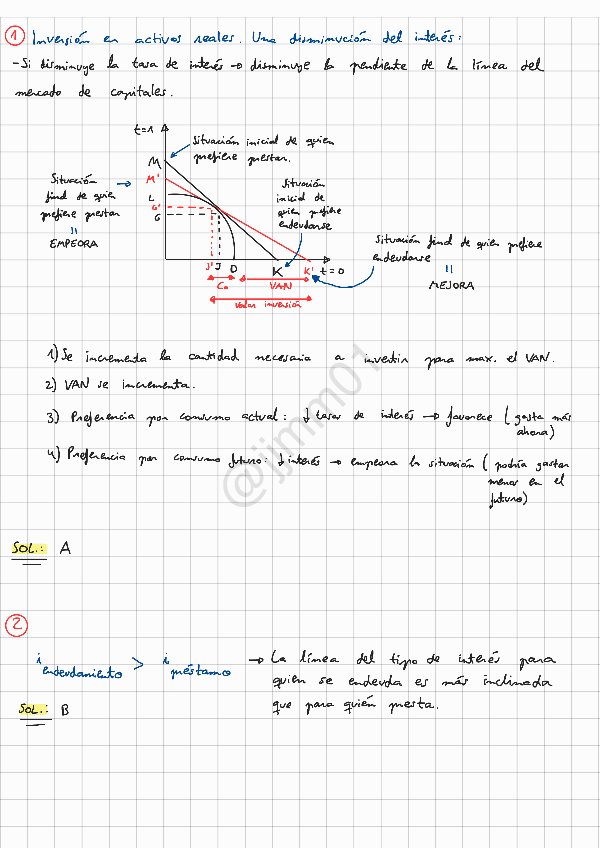 1 Inversión en activos reales. Una disminución del interés:
- Si disminuye la tasa de interés → disminuye la pendiente de la línea del
mercado de capitales.
t=1
Situación inicial de quien
prefiere prestar.
M
Situación
final de quien
prefiere prestar
EMPEORA
M'
L
G'
G
Situación
inicial de
quien prefiere
endeudarse
Situación final de quien prefiere
endeudarse
MEJORA
J' J D K K' t=0
C₀ VAN
Valor inversión
1) Se incrementa la cantidad necesaria a invertir para max. el VAN.
2) VAN se incrementa.
3) Preferencia por consumo actual: ↓ tasas de interés → favorece (gasta más
ahora)
4) Preferencia por consumo futuro: ↓ interés → empeora la situación (podría gastar
menos en el
futuro)
@jjmm01
SOL.: A
2
i endeudamiento > i préstamo → La línea del tipo de interés para
quien se endeuda es más inclinada
que para quién presta.
SOL.: B